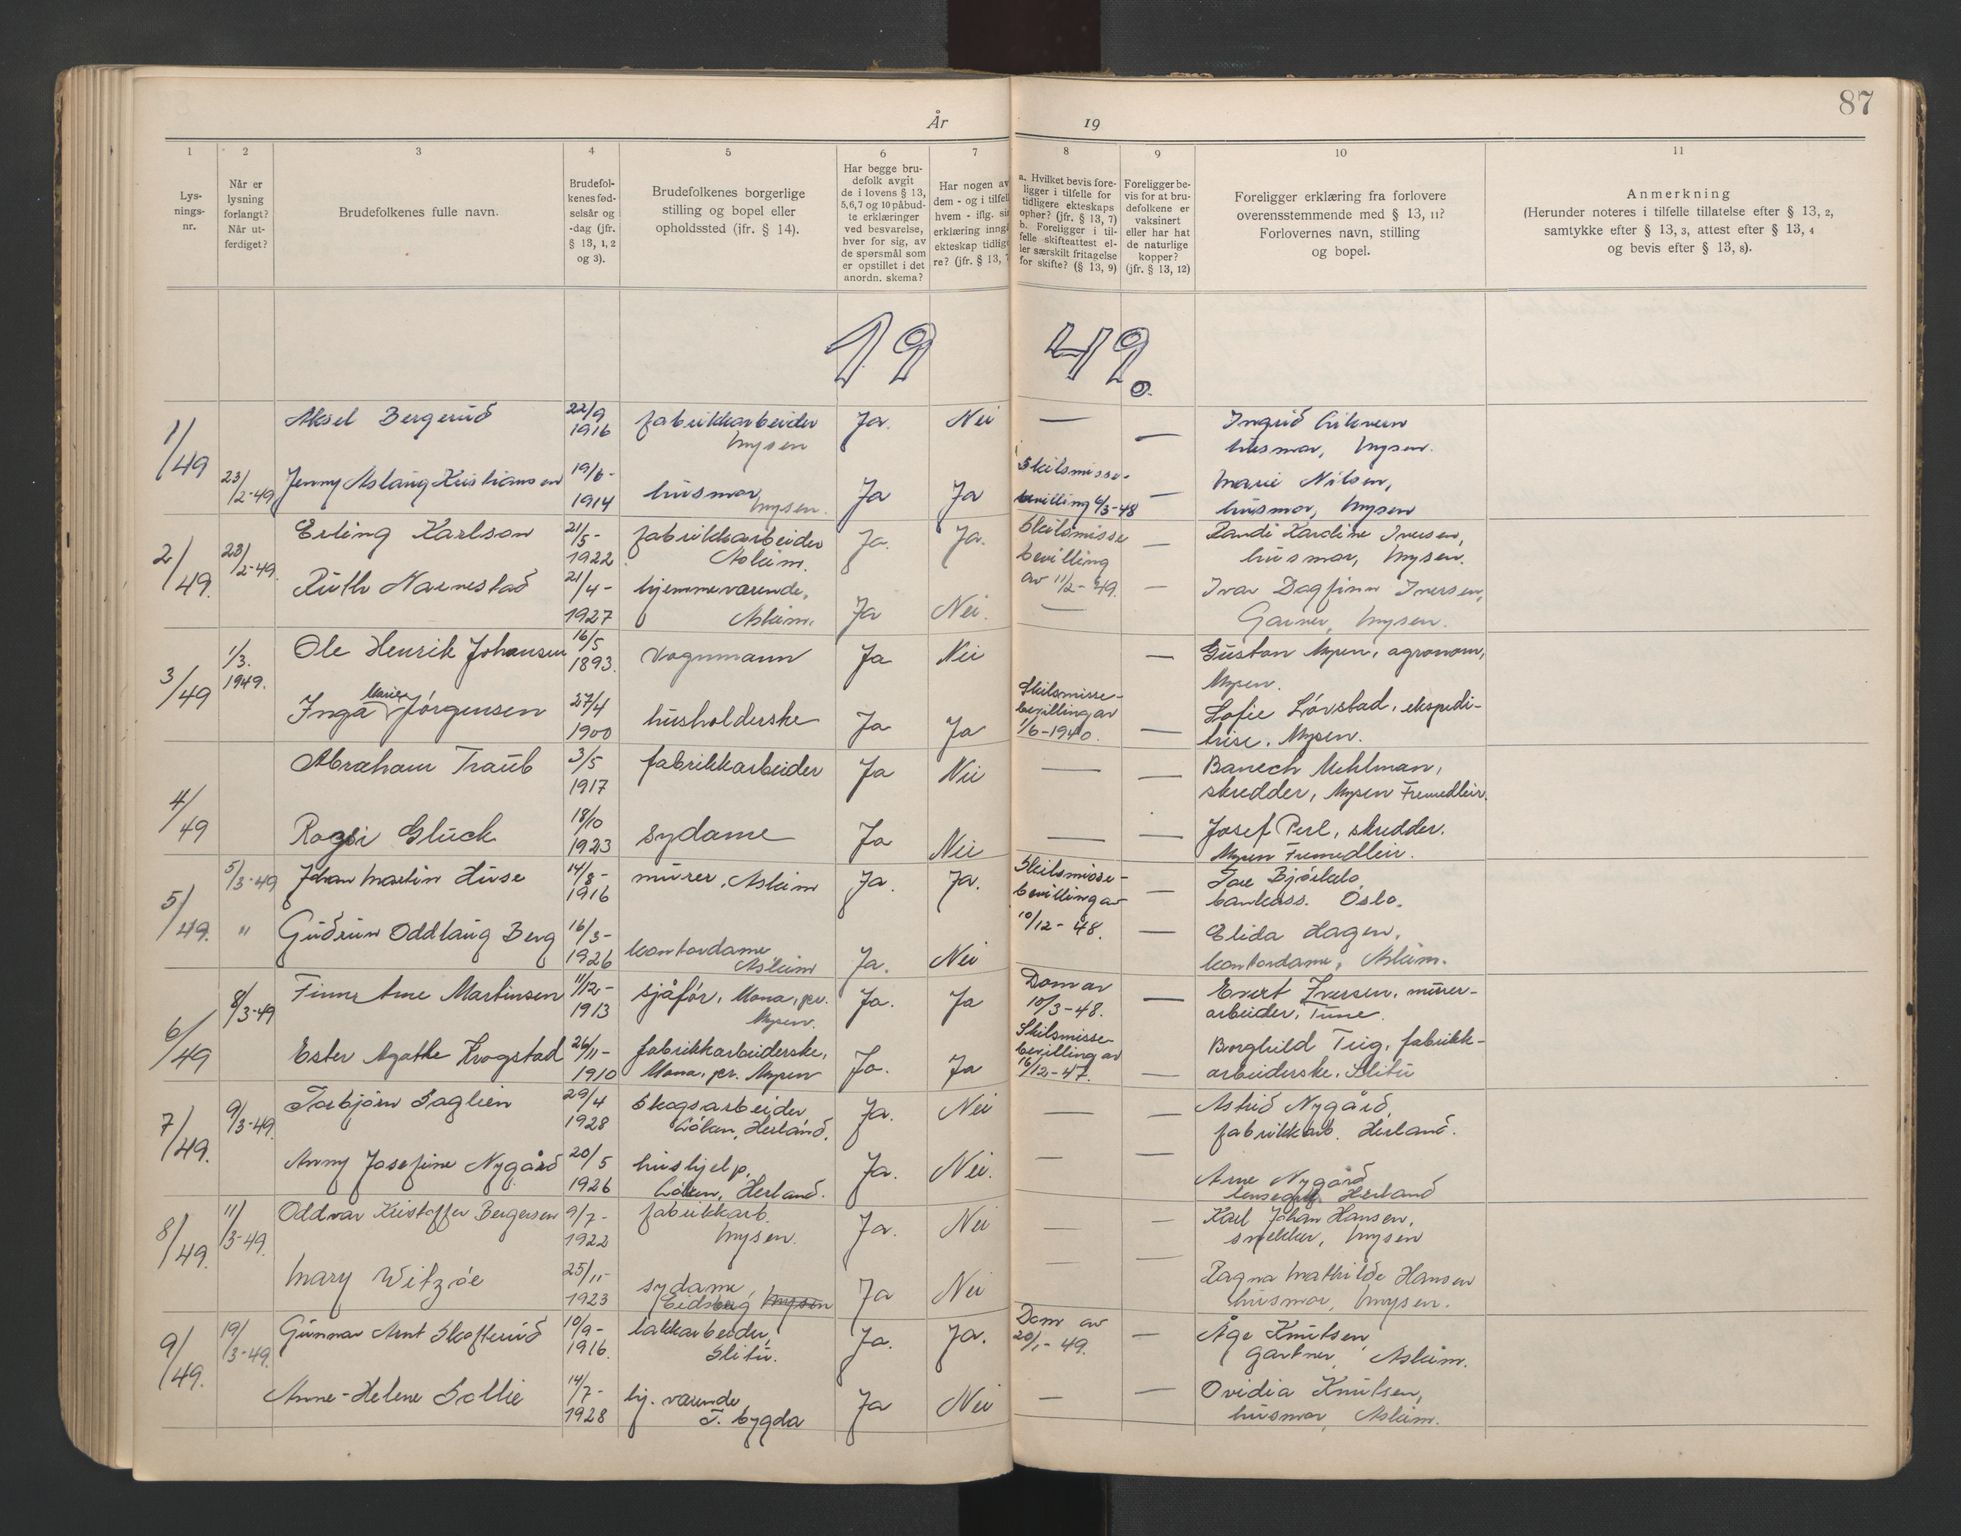 87
År 19
1 2 3 4 5 6 7 8 9 10 11
Lys-
nings-
nr.
Når er
lysning
forlangt?
Når ut-
ferdiget?
Brudefolkenes fulle navn.
Brudefol-
kenes fød-
selsår og
-dag (jfr.
§ 13, 1, 2
og 3).
Brudefolkenes borgerlige
stilling og bopel eller
opholdssted (jfr. § 14).
Har begge bru-
defolk avgit
de i lovens § 13,
5,6,7 og 10 påbud-
te erklæringer
ved besvarelse,
hver for sig, av
de spørsmål som
er opstillet i det
anordn. skema?
Har nogen av
dem - og i tilfel
hvem - iflg. sin
erklæring inng
ekteskap tidlige
re? (jfr. § 13, 7
a. Hvilket bevis fore-
ligger i tilfelle for
tidligere ekteskaps
ophør? (jfr. § 13, 7)
b. Foreligger i til-
felle skifteattest el-
ler særskilt fritagelse
for skifte? (§ 13, 9)
Foreligger be-
vis for at bru-
defolkene er
vaksinert
eller har hat
de naturlige
kopper?
(jfr. § 13, 12)
Foreligger erklæring fra forlovere
overensstemmende med § 13, 11?
Forlovernes navn, stilling
og bopel.
Anmerkning
(Herunder noteres i tilfelle tillatelse efter § 13, 2,
samtykke efter § 13, 3, attest efter § 13, 4
og bevis efter § 13, 8).
19 49.
1/49
Aksel Bergerud 22/9 1916 fabrikkarbeider Mysen Ja. Nei — — Ingrid
husmor, Mysen.
23/2-49 Jenny Aslaug Kristiansen 19/6-1914 husmor, Mysen. Ja Ja Skilsmisse-
bevilling 6/3-48 — Marie Nilsen,
husmor, Mysen
2/49. 23/2-49. Erling Karlson 21/5-1922 fabrikkarbeider Askim. Ja. Ja. Skilsmisse
bevilling
av 11/2-49. — Randi Kardine Iversen,
husmor, Mysen.
Ruth Narnestad 21/4-1927 hjemmeværende, Askim. Ja Nei. — — Ivar Dagfinn Iversen,
Garver, Mysen.
3/49 1/3. 1949. Ole Henrik Johansen 16/5 1893. Vognmann Ja Nei — Gustav Mysen, agronom,
Mysen.
Inga Marie Jørgensen 27/4 1900 husholderske Ja Ja Skilsmisse-
bevilling av
1/6-1940. — Sofie Løvstad, ekspedi-
trise, Mysen.
4/49 Abraham Traub 3/5 1917 fabrikkarbeider Ja Nei — — Banech Mehlman,
skredder, Mysen Fremedleir.
Rogsi Glück 18/10 1923 sydame Ja Nei — — Josef Perl, skredder.
Mysen Fremedleir.
5/49. 5/3-49 Johan Martin Huse 14/8-1916 murer, Askim Ja. Ja. Skilsmisse-
bevilling av
10/12-48. — Tore
bankass. Oslo.
" Gudrun Oddlaug Berg 16/3-1926 kontordame Askim Ja. Nei — Elida Hagen,
kontordame, Askim.
6/49 8/3-49 Finn Arne Martinsen 11/12-1913 sjåfør, Mona, pr.
Mysen. Ja. Ja Dom av
10/3-48. — Evert Iversen, murer-
arbeider, Tune.
Ester Agathe Krogstad 26/11-1910 fabrikkarbeiderske,
Mona, pr. Mysen Ja. Ja Skilsmisse-
bevilling av
16/12-47. — Borghild Trig, fabrikk-
arbeiderske. Slitu
7/49. 9/3-49. Torbjørn Saglien 29/4 1928 Skogsarbeider
Løken, Herland. Ja. Nei — — Astrid Nygård,
fabrikkarb. Herland.
Anny Josefine Nygård 20/5 1926 hushjelp,
Løken, Herland. Ja. Nei. — — Arne Nygård
Herland
8/49. 11/3-49. Oddvar Kristoffer Bergersen 9/7-1922 fabrikkarb.
Mysen. Ja. Nei — — Karl Johan Hansen,
snekker, Mysen
Mary Witzøe 25/11-1923 sydame,
Eidsberg Mysen Ja Nei — — Ragna Mathilde Hansen
husmor, Mysen.
9/49. 19/3-49. Gunnar Arnt Skofterud 10/9-1916. lakkarbeider,
Slitu. Ja. Ja. Dom av
20/1-49. — Åge Knutsen,
gartner, Askim.
Anne-Helene Sollie 14/7-1928 hj. værende
T. bygda Ja Nei — — Ovidia Knutsen,
husmor, Askim.